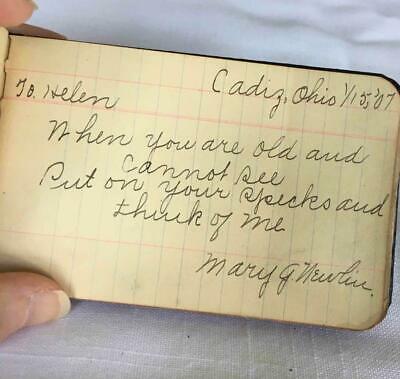 Cadiz, Ohio 1/15,'07
To, Helen
When you are old and
cannot see
Put on your specks and
think of me
Mary G. Newlin.